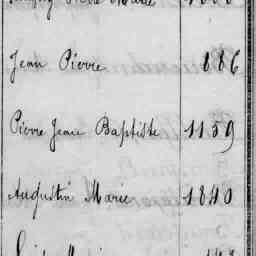 Jean Pierre 886
Pierre Jean Baptiste 1159
Augustin Marie 1840